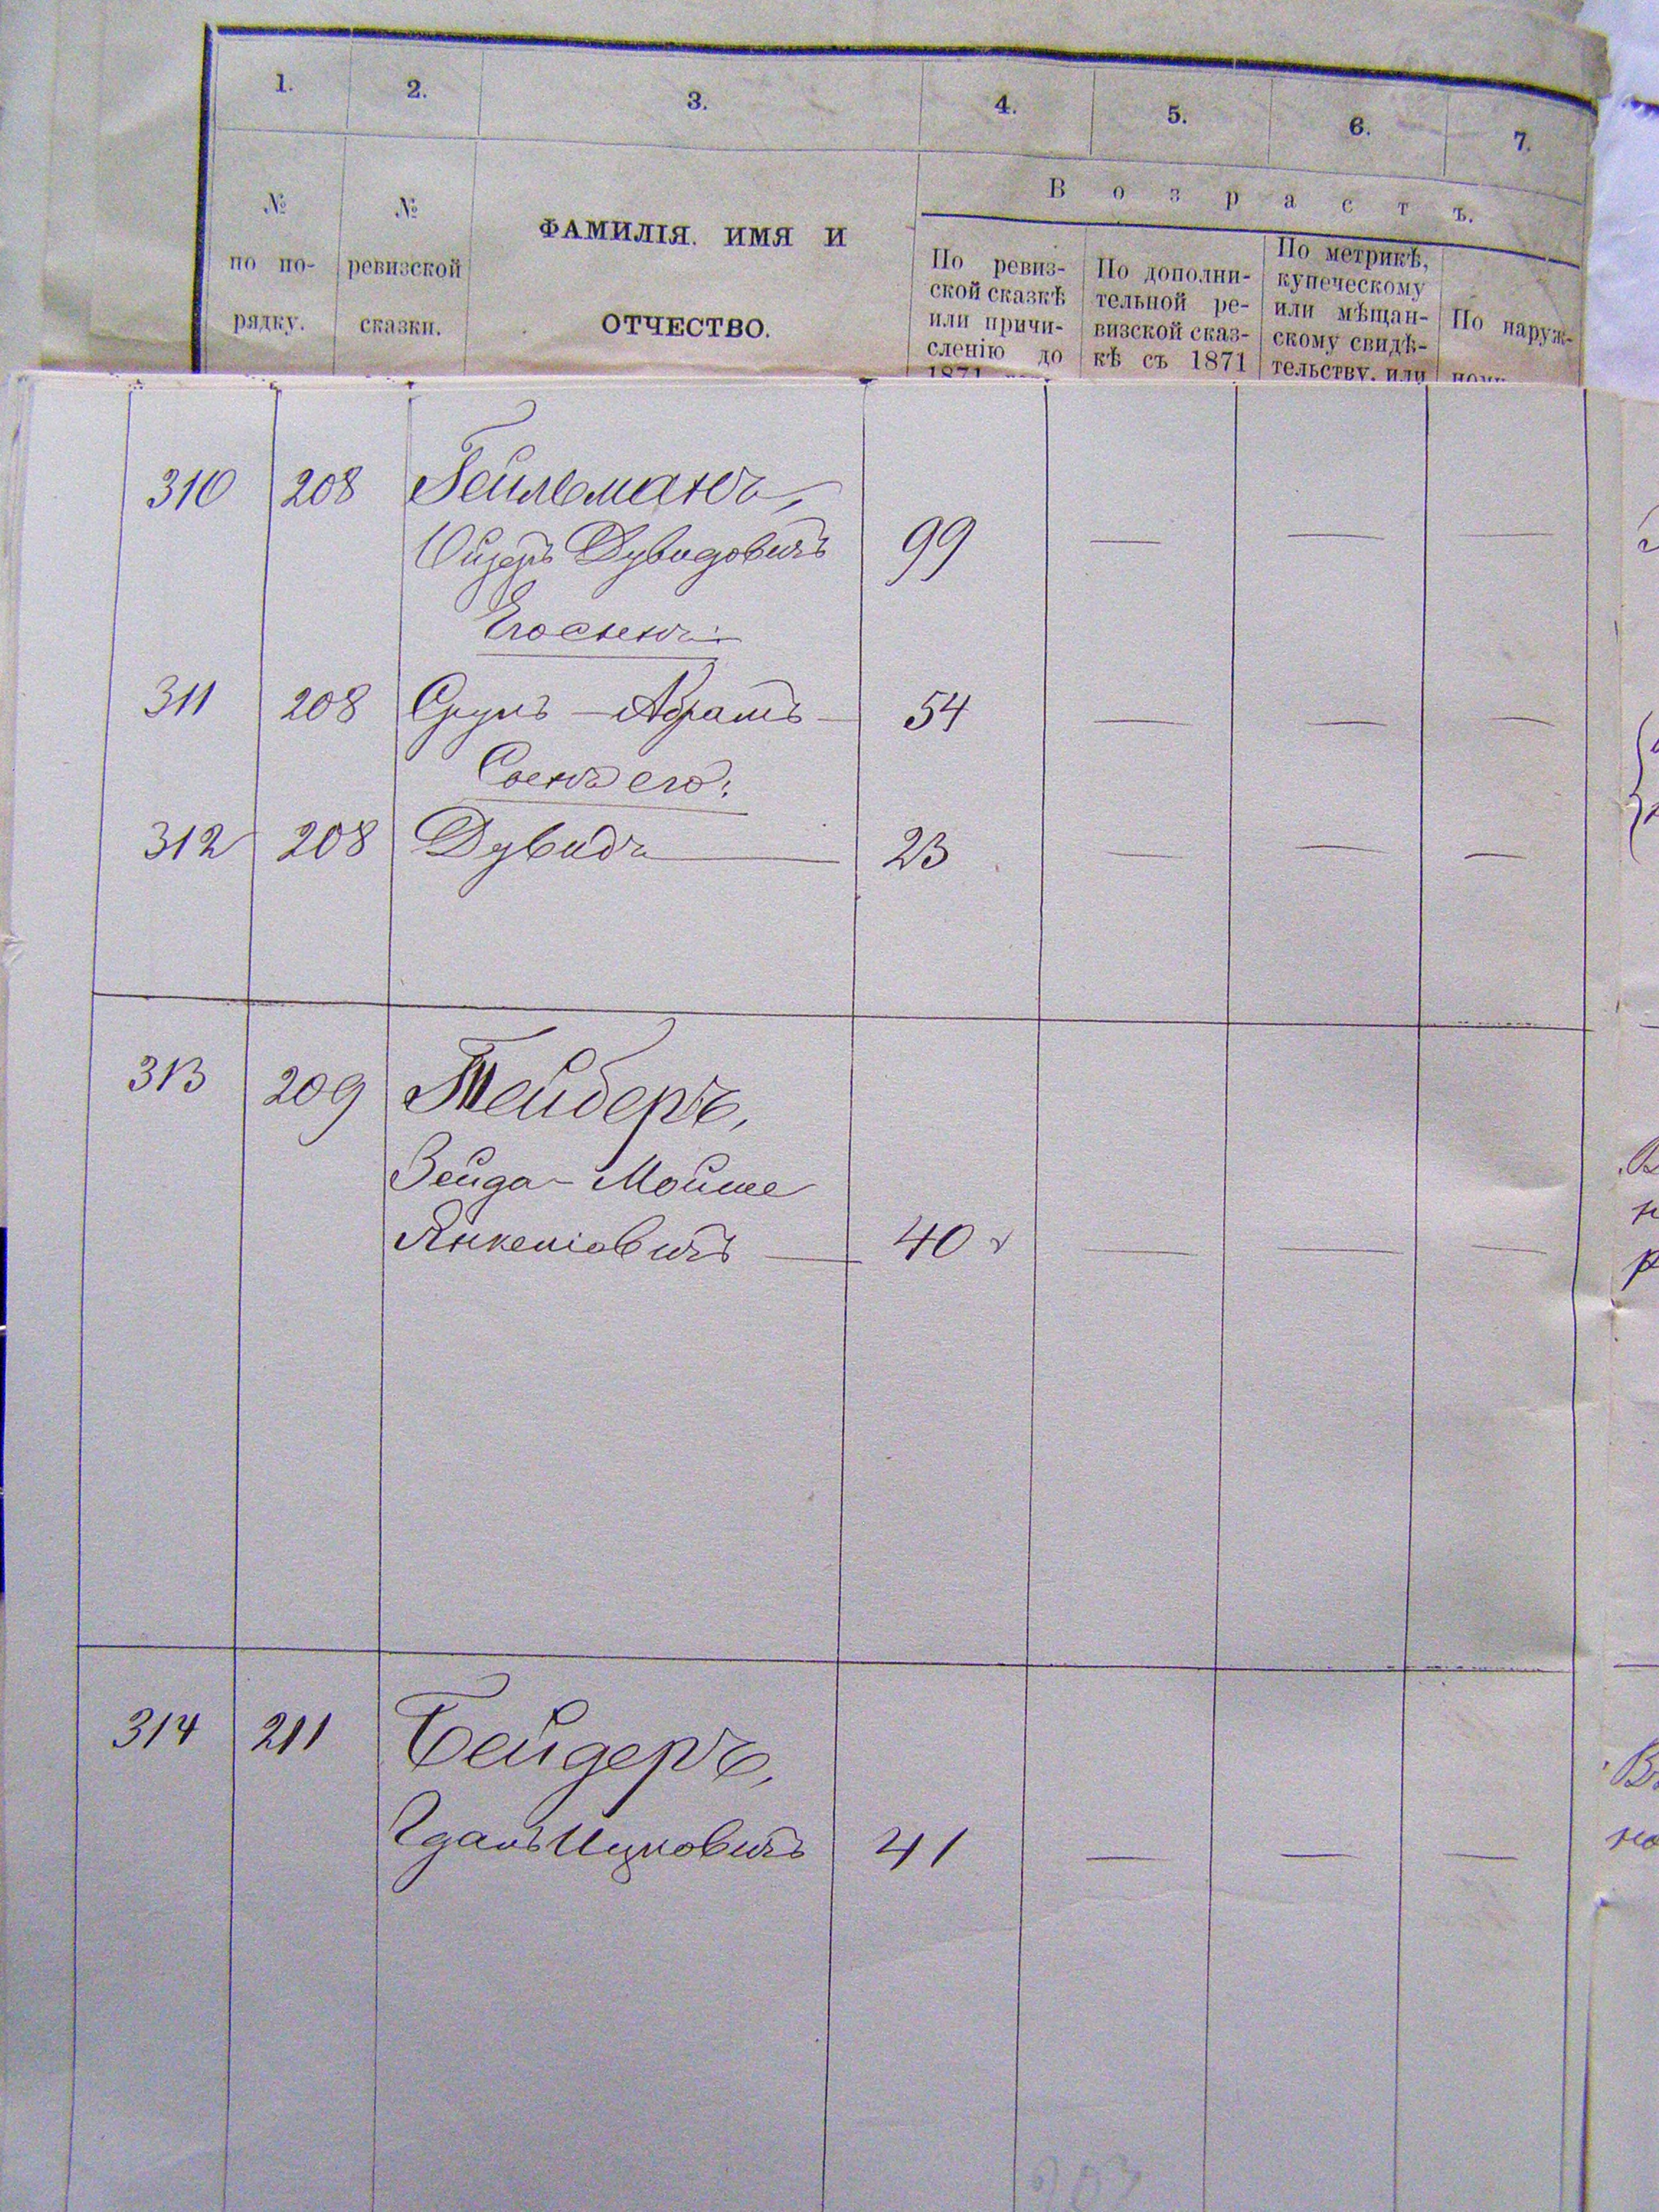 1. 2. 3. 4. 5. 6. 7.
В о з р а с т ъ.
№ по по- рядку.
№ ревизской сказки.
ФАМИЛІЯ. ИМЯ И
ОТЧЕСТВО.
По ревиз-
ской сказкѣ
или причи-
сленію до
1871
По дополни-
тельной ре-
визской сказ-
кѣ съ 1871
По метрикѣ,
купеческому
или мѣщан-
скому свидѣ-
тельству, или
По наруж-
ному
310 208 Гейльманъ,
Дувидовичъ 99 — — —
Его сынъ:
311 208 Срулъ — Абрамъ — 54 — — —
Сынъ его:
312 208 Дувидъ — 23 — — —
313 209 Тейберъ,
Зейда - Мойше
Янкеліовичъ — 40 — — —
314 211 Бейдеръ,
Гдаль Ицковичъ 41 — — —